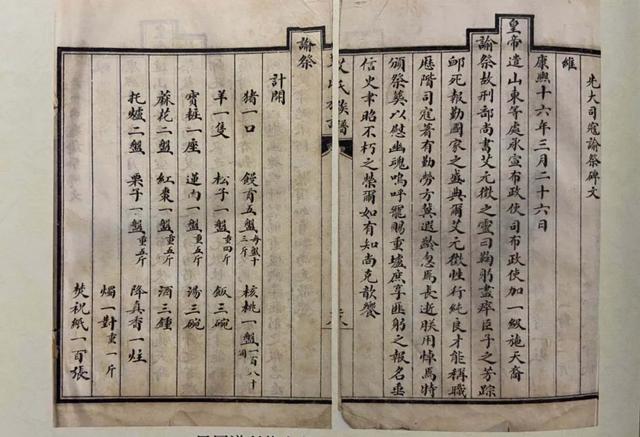 先大司寇諭祭碑文
維
康熙十六年三月二十六日
皇帝遣山東等處承宣布政使司布政使加一級施天裔
諭祭故刑部尚書艾元徵之靈曰鞠躬盡瘁臣子之芳踪
卹死報勤國家之盛典爾艾元徵性行純良才能稱職
歷階司寇著有勤勞方冀遐齡忽焉長逝朕用悼焉特
頒祭葬以慰幽魂嗚呼寵賜重壚庶享匪躬之報名垂
信史聿昭不朽之榮爾如有知尚克歆饗
艾氏族譜
諭祭
計開
豬一口 饅首五盤每盤十三斤 核桃一盤一百八十個
羊一隻 松子一盤重四斤 飯三碗
寶粧一座 蓮肉一盤重五斤 湯三碗
蔴花二盤 紅棗一盤重五斤 酒三鍾
托爐二盤 栗子一盤重五斤 降真香一炷
燭一對重一斤
焚祝紙一百張